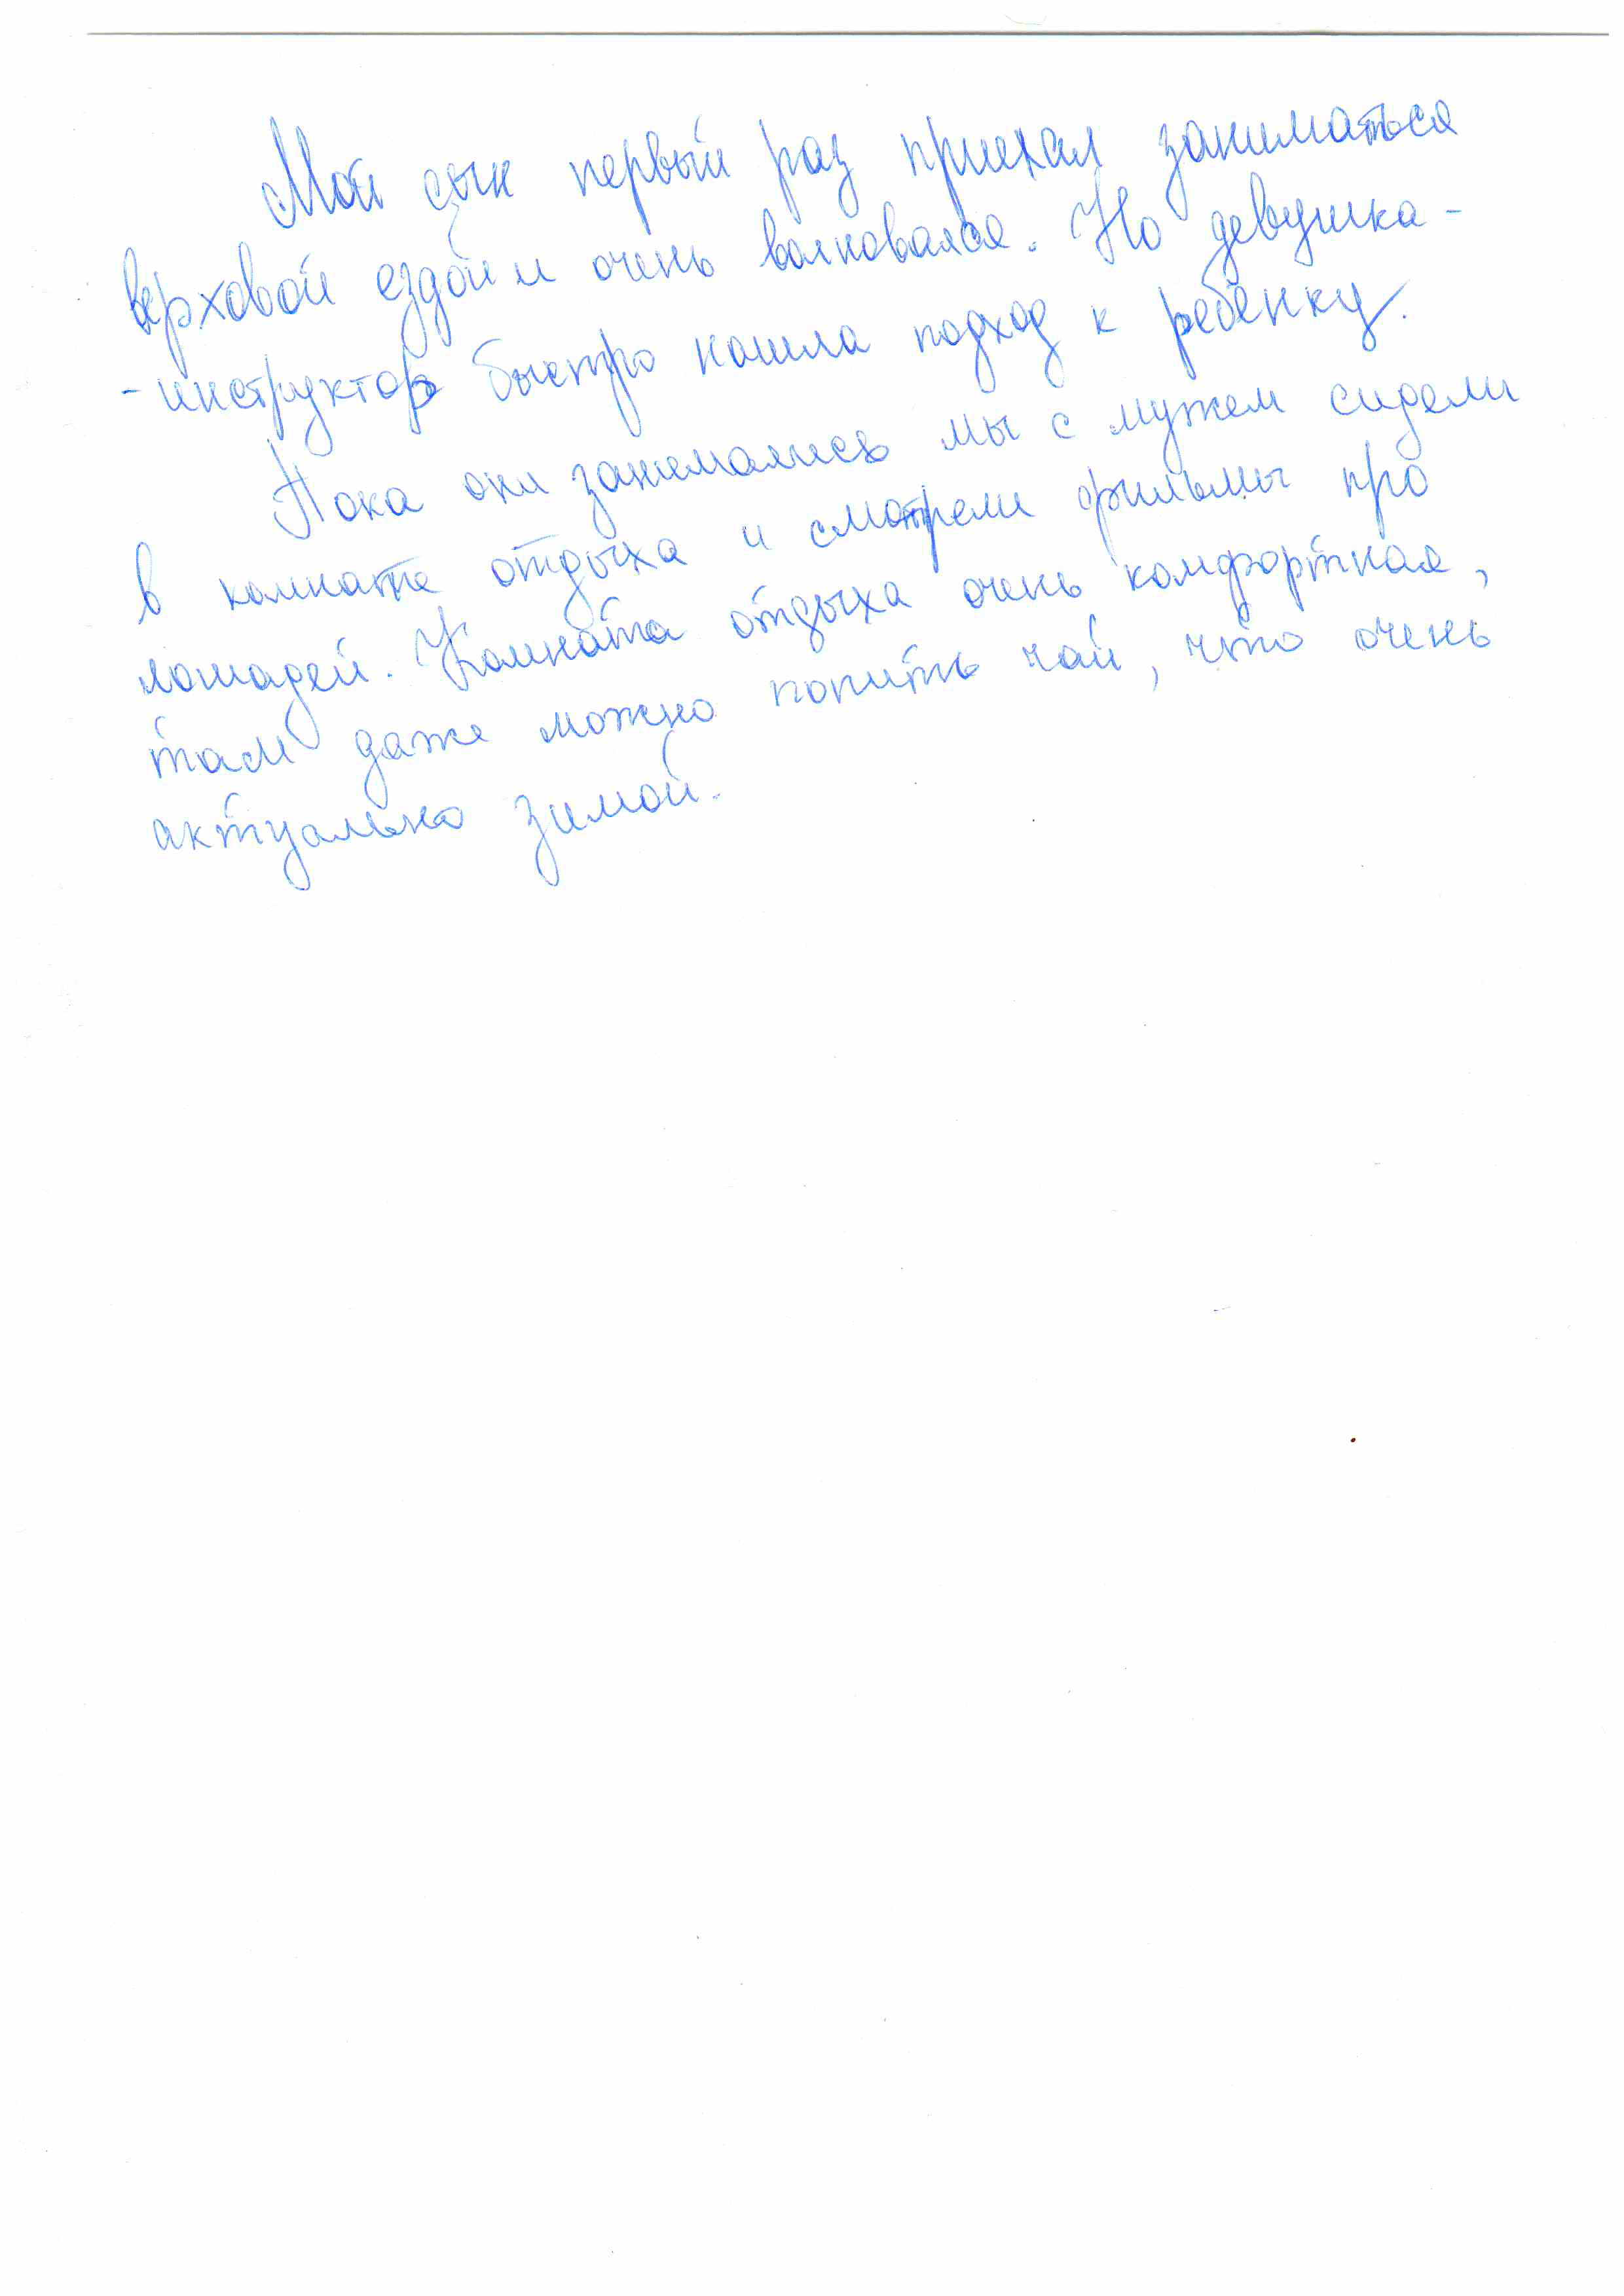 Мой сын первый раз приехал заниматься
верховой ездой и очень волновался. Но девушка-
-инструктор быстро нашла подход к ребенку.
Пока они занимались мы с мужем сидели
в комнате отдыха и смотрели фильмы про
лошадей. Комната отдыха очень комфортная,
там даже можно попить чай, что очень
актуально зимой.